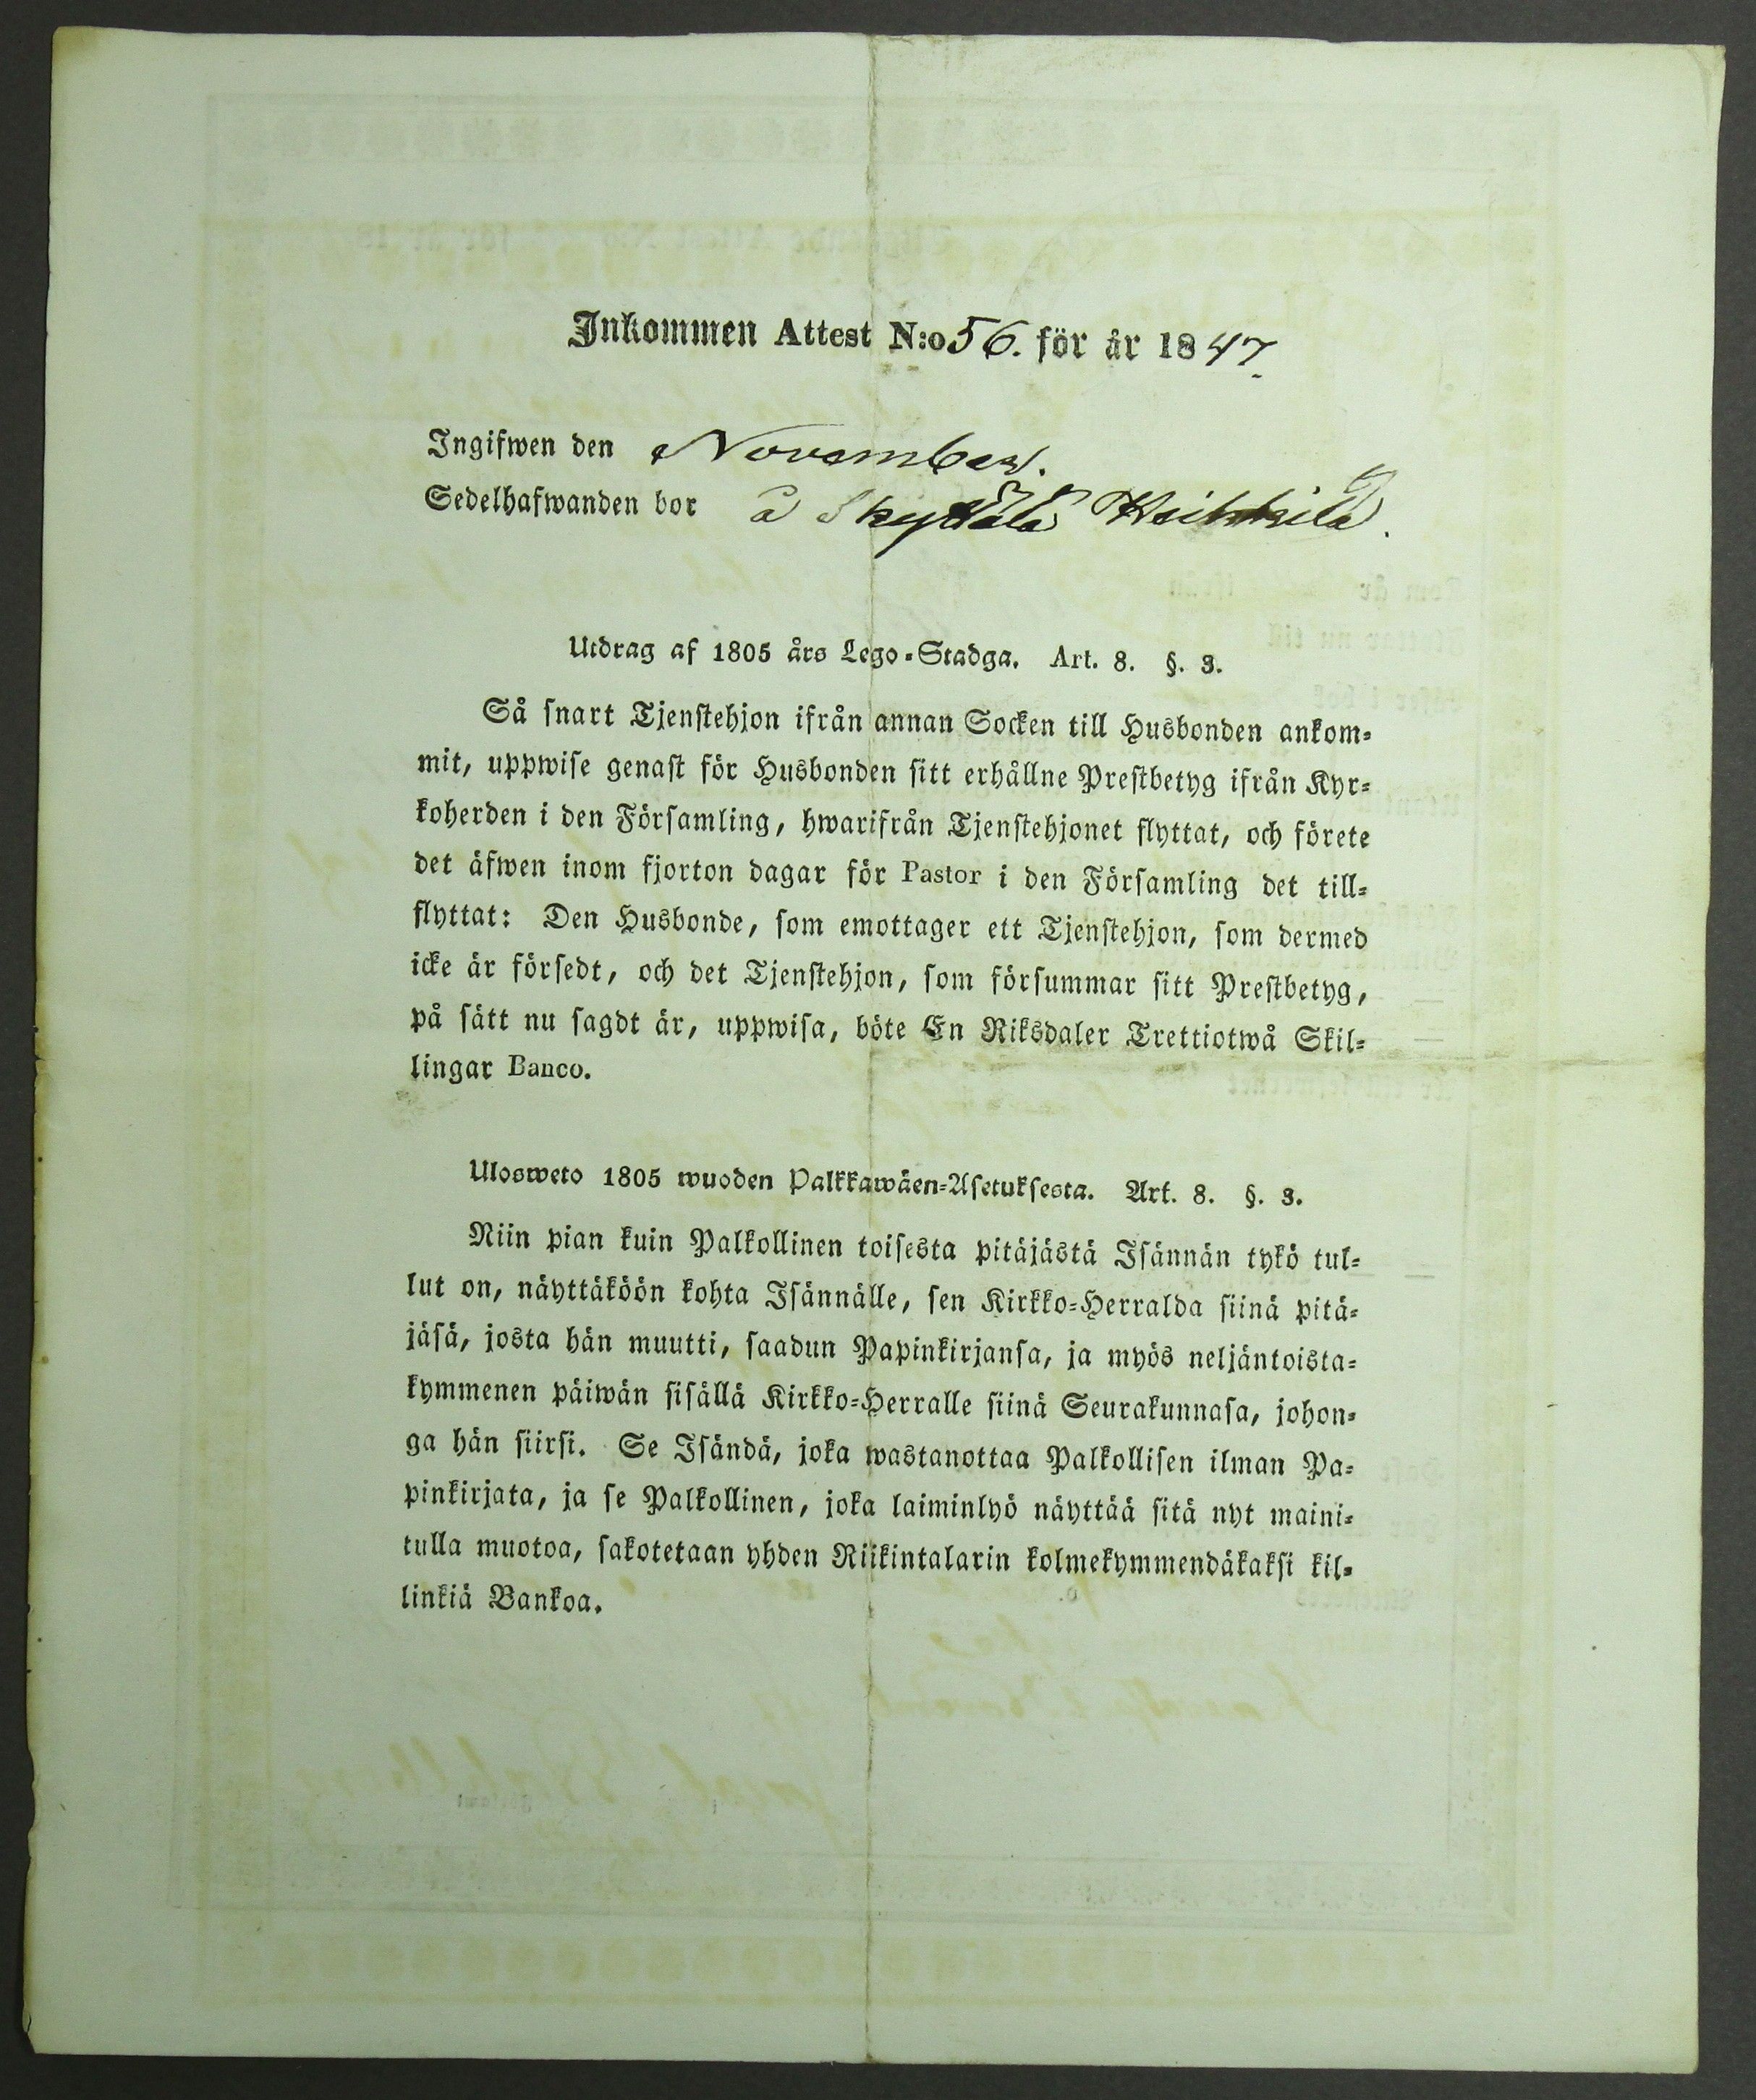 Inkommen Attest N:o 56. för år 1847.
Ingifwen den November.
Sedelhafwanden bor å Skyttälä Heikkilä.
Utdrag af 1805 års Lego-Stadga. Art. 8. §. 3.
Så snart Tjenstehjon ifrån annan Socken till Husbonden ankom-
mit, uppwise genast för Husbonden sitt erhållne Prestbetyg ifrån Kyr-
koherden i den Församling, hwarifrån Tjenstehjonet flyttat, och förete
det äfwen inom fjorton dagar för Pastor i den Församling det till-
flyttat: Den Husbonde, som emottager ett Tjenstehjon, som dermed
icke är försedt, och det Tjenstehjon, som försummar sitt Prestbetyg,
på sätt nu sagdt är, uppwisa, böte En Riksdaler Trettiotwå Skil-
lingar Banco.
Ulosweto 1805 wuoden Palkkawäen-Asetuksesta. Art. 8. §. 3.
Niin pian kuin Palkollinen toisesta pitäjästä Isännän tykö tul-
lut on, näyttäköön kohta Isännälle, sen Kirkko-Herralda siinä pitä-
jäsä, josta hän muutti, saadun Papinkirjansa, ja myös neljäntoista-
kymmenen päiwän sisällä Kirkko-Herralle siinä Seurakunnasa, johon-
ga hän siirsi. Se Isändä, joka wastanottaa Palkollisen ilman Pa-
pinkirjata, ja se Palkollinen, joka laiminlyö näyttää sitä nyt maini-
tulla muotoa, sakotetaan yhden Riikintalarin kolmekymmendäkaksi kil-
linkiä Bankoa.